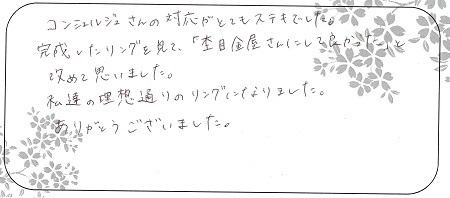 コンシェルジュさんの対応がとてもステキでした。
完成したリングを見て、「杢目金屋さんにして良かった」と
改めて思いました。
私達の理想通りのリングになりました。
ありがとうございました。